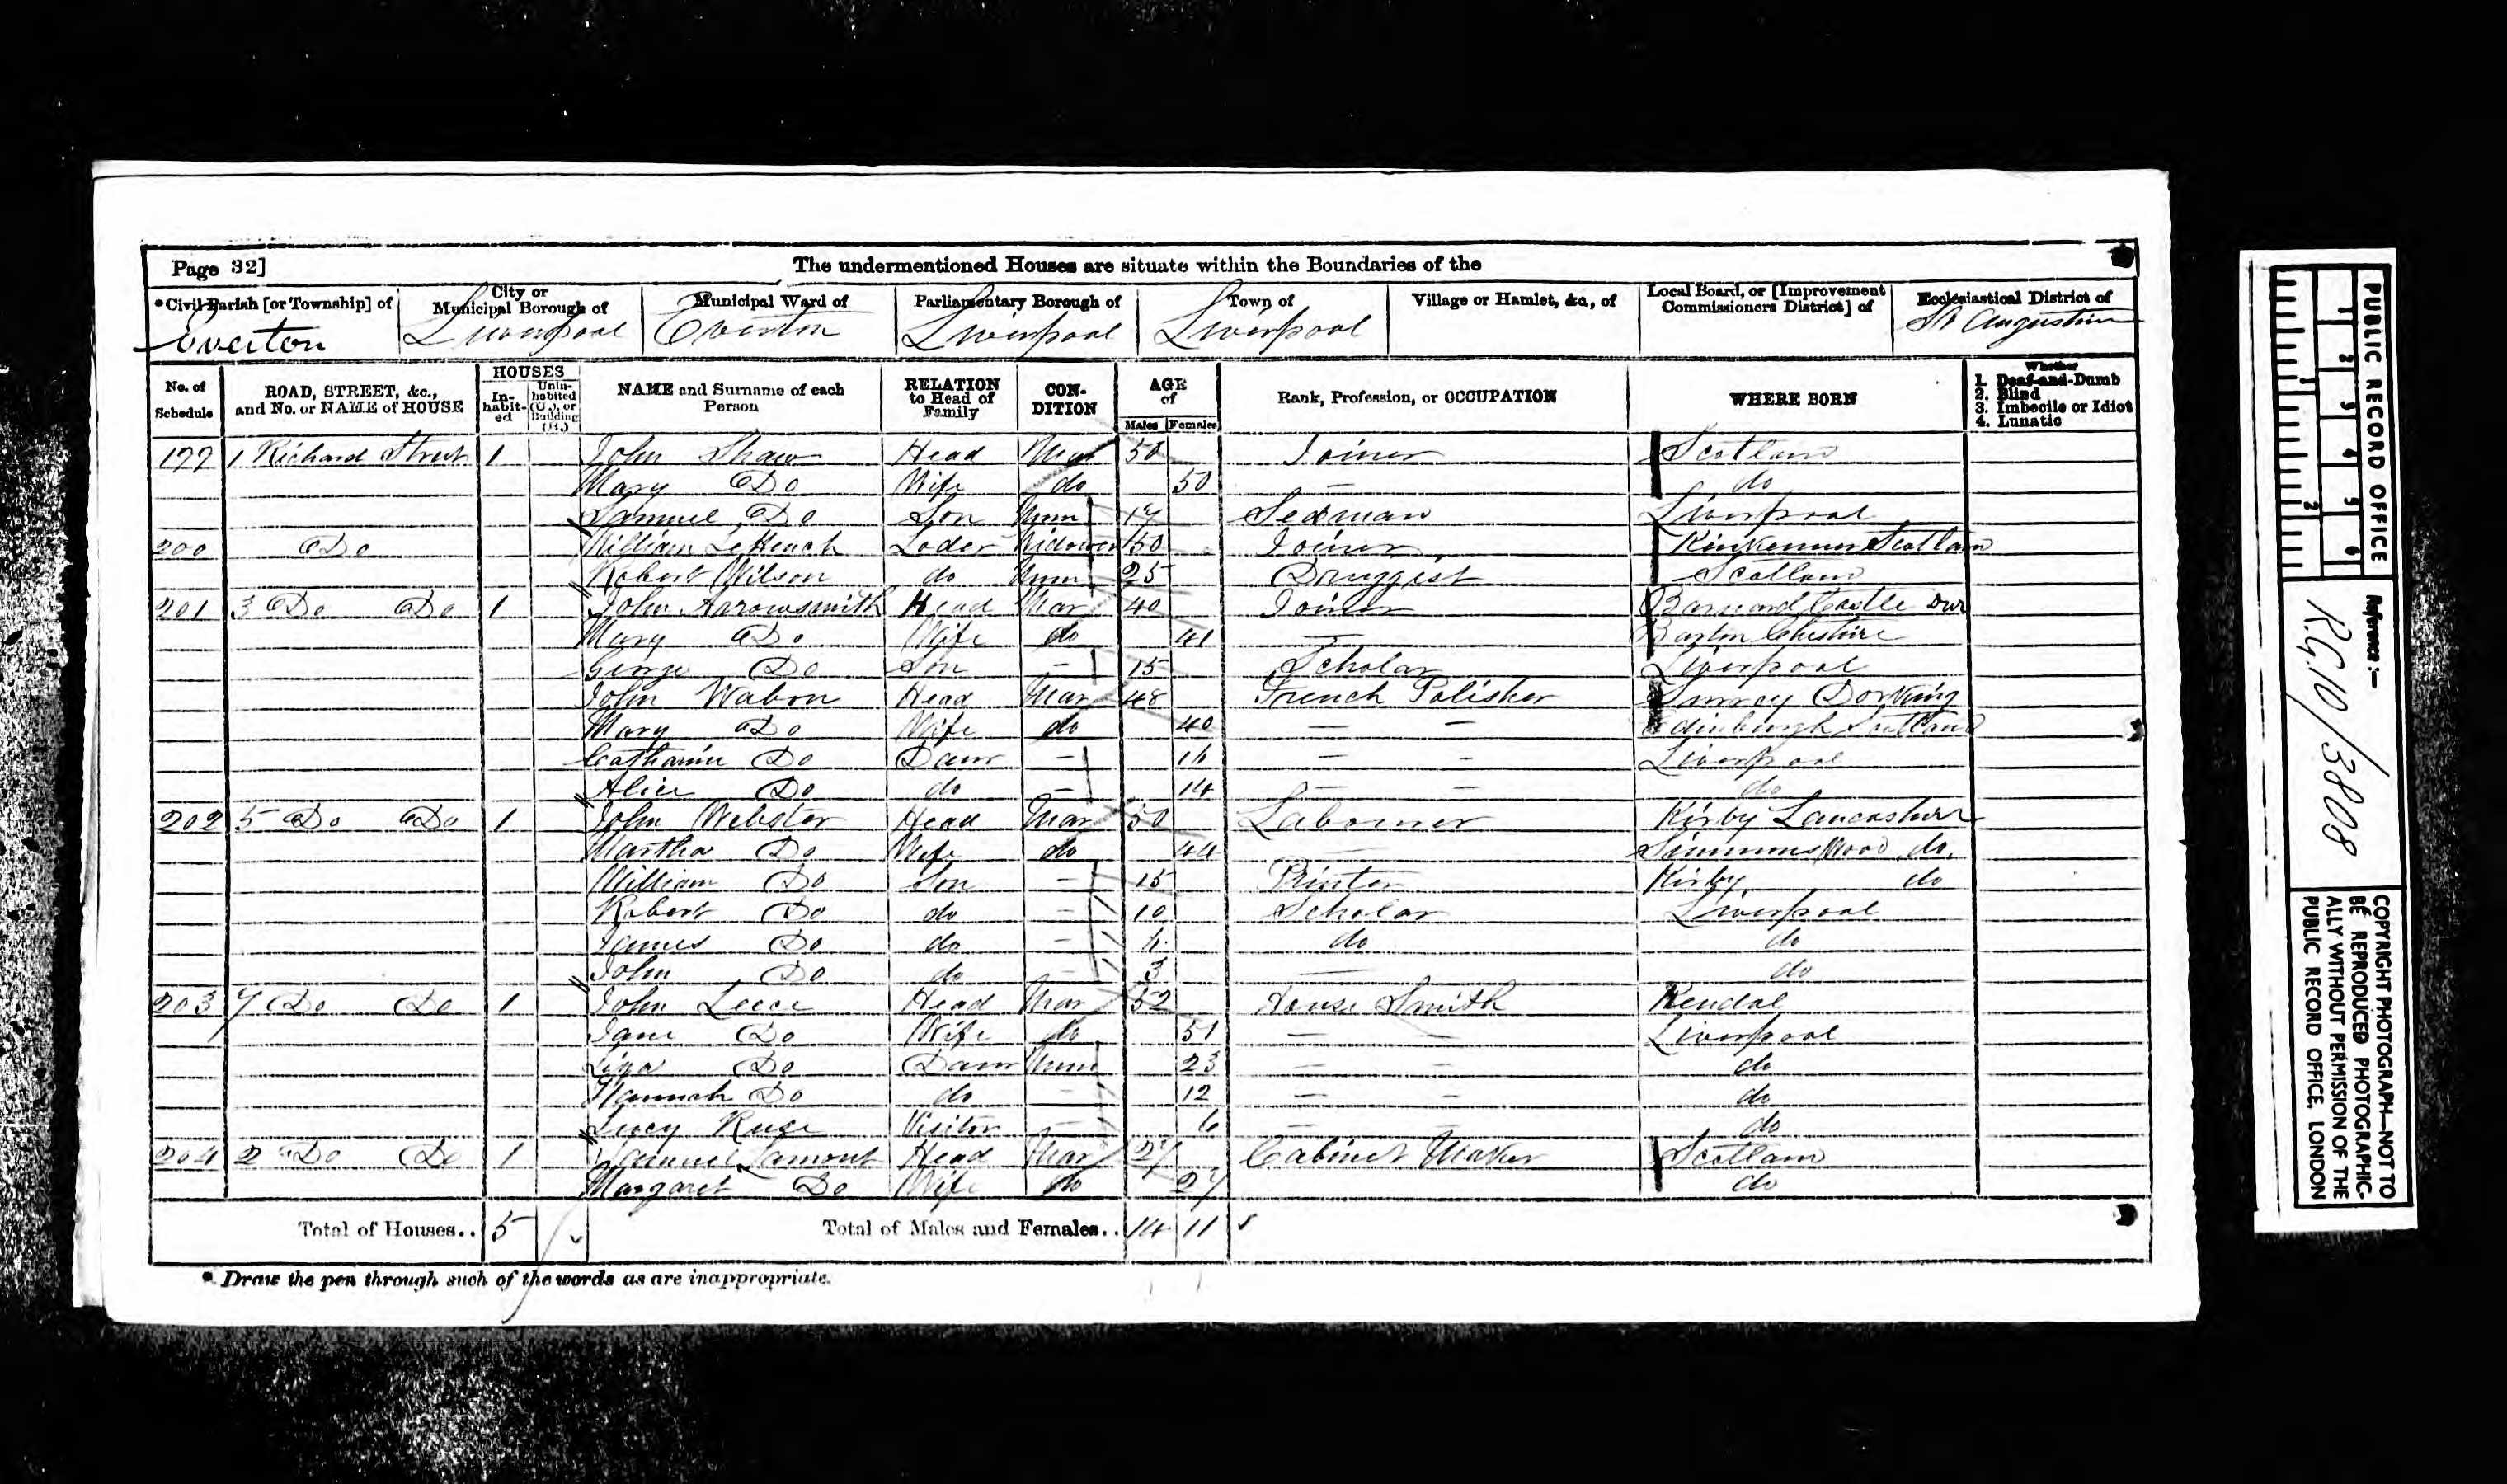 Page 32]
The undermentioned Houses are situate within the Boundaries of the
*Civil Parish [or Township] of
City or Municipal Borough of
Municipal Ward of
Parliamentary Borough of
Town of
Village or Hamlet, &c., of
Local Board, or [Improvement Commissioners District] of
Ecclesiastical District of
Everton Liverpool Everton Liverpool Liverpool St Augustine
No. of Schedule
ROAD, STREET, &c., and No. or NAME of HOUSE
HOUSES
In-habit-ed
Unin-habited (U.), or Building (B.)
NAME and Surname of each Person
RELATION to Head of Family
CON-DITION
AGE of
Males Females
Rank, Profession, or OCCUPATION
WHERE BORN
Whether
1. Deaf-and-Dumb
2. Blind
3. Imbecile or Idiot
4. Lunatic
1 Richard Street 1 John Shaw Head Mar 50 Joiner Scotland
Mary Do Wife do 50 — do
Samuel Do Son Unm 17 Liverpool
200 Do William Loder Widower 50 Joiner Scotland
Robert Wilson do Unm 25 Druggist Scotland
201 3 Do Do 1 John Arrowsmith Head Mar 40 Joiner Barnard Castle Dur
Mary Do Wife do 41 — Cheshire
George Do Son — 15 Scholar Liverpool
John Wabon Head Mar 48 French Polisher Surrey Dorking
Mary Do Wife do 40 — — Edinburgh Scotland
Catharine Do Daur — 16 — — Liverpool
Alice Do do — 14 — — do
202 5 Do Do 1 John Webster Head Mar 50 Labourer Kirby Lancashire
Martha Do Wife do 44 — Simmons Wood do.
William Do Son — 15 Printer Kirby do
Robert Do do — 10 Scholar Liverpool
James Do do — 6 do do
John Do do — 3 — do
203 7 Do Do 1 John Leece Head Mar 52 House Smith Kendal
Jane Do Wife do 51 — — Liverpool
Do Daur Unm 23 — — do
Hannah Do do — 12 — — do
Lucy Visitor — 6 — — do
204 2 Do Do 1 Samuel Lamont Head Mar 27 Cabinet Maker Scotland
Margaret Do Wife do 27 do
Total of Houses.. 5 Total of Males and Females.. 14 11
* Draw the pen through such of the words as are inappropriate.
PUBLIC RECORD OFFICE
1 2 3 4 5 6
1 2
Reference :—
R.G. 10/3808
COPYRIGHT PHOTOGRAPH—NOT TO
BE REPRODUCED PHOTOGRAPHIC-
ALLY WITHOUT PERMISSION OF THE
PUBLIC RECORD OFFICE, LONDON